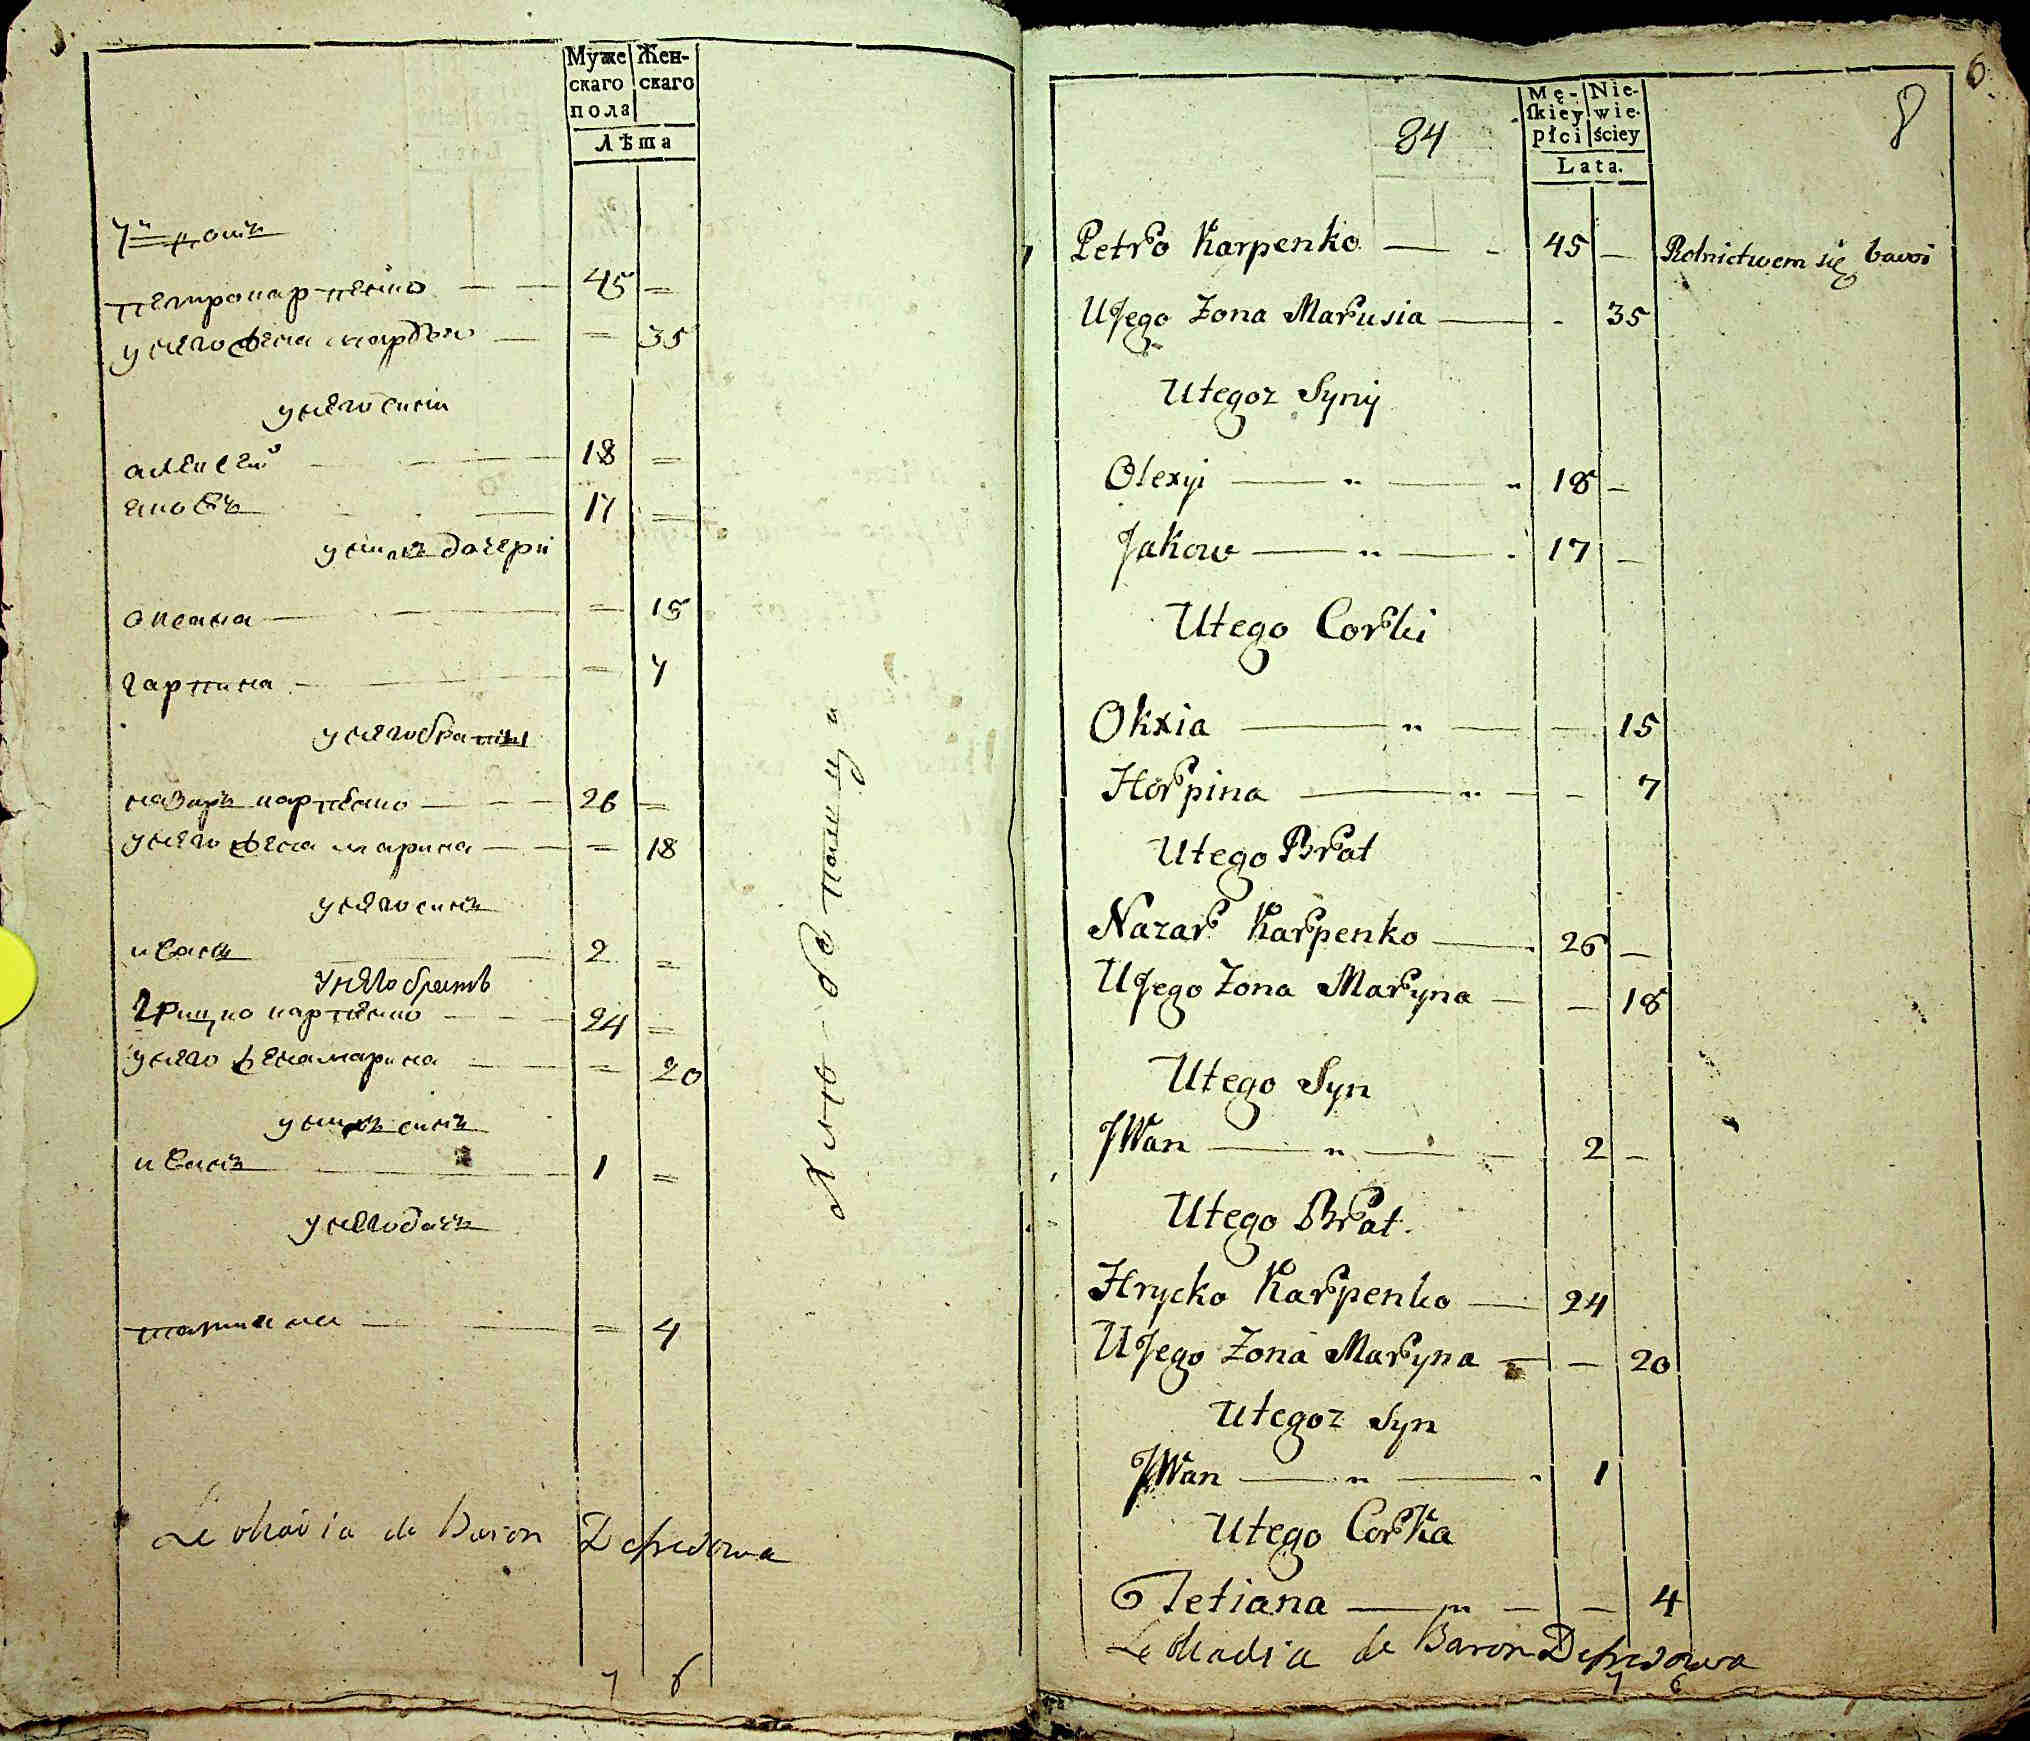 Муже
скаго
пола
Жен-
скаго
Лѣта
петро карпенко — — 45 =
у него жена — = 35
у него сини
алексей — — 18 =
яковъ — — 17 =
у нихъ дочери
оксана — — = 15
гарпина — — = 7
у него братъ
назаръ карпенко — — 26 =
у него жена марина — — = 18
у него синъ
иванъ — 2 =
У него братъ
грицко карпенко — — 24 =
у него жена марина — — = 20
у нихъ синъ
иванъ — 1 =
у него дочъ
татиана — — = 4
de Baron
7 6
6.
8
84
Mę-
ſkiey
płci
Nie-
wie-
ściey
Lata.
Petro Karpenko — - 45 — Rolnictwem się bawi
U Jego Zona Marusia — - 35
U tegoz Syny
Olexyi — " — " 18 –
Jakow — " — " 17 –
U tego Corki
Okxia — " — — 15
Horpina — " — – 7
U tego Brat
Nazar Karpenko — 26 –
U Jego Zona Maryna — – 18
U tego Syn
JWan — " — – 2 –
U tego Brat.
Hrycko Karpenko — 24
U Jego Zona Maryna — – 20
U tegoz Syn
JWan — " — " 1
U tego Corka
Tetiana — " — – 4
de Baron
7 6